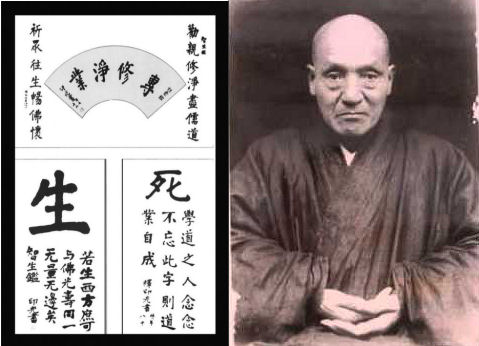 勸親修淨盡儒道
專修淨業
祈眾往生暢佛懷
死
學道之人念念
不忘此字則道
業自成
釋印光書
生
若生西方庶可
与佛光壽同一
无量无邊矣
智生鑑 印光書